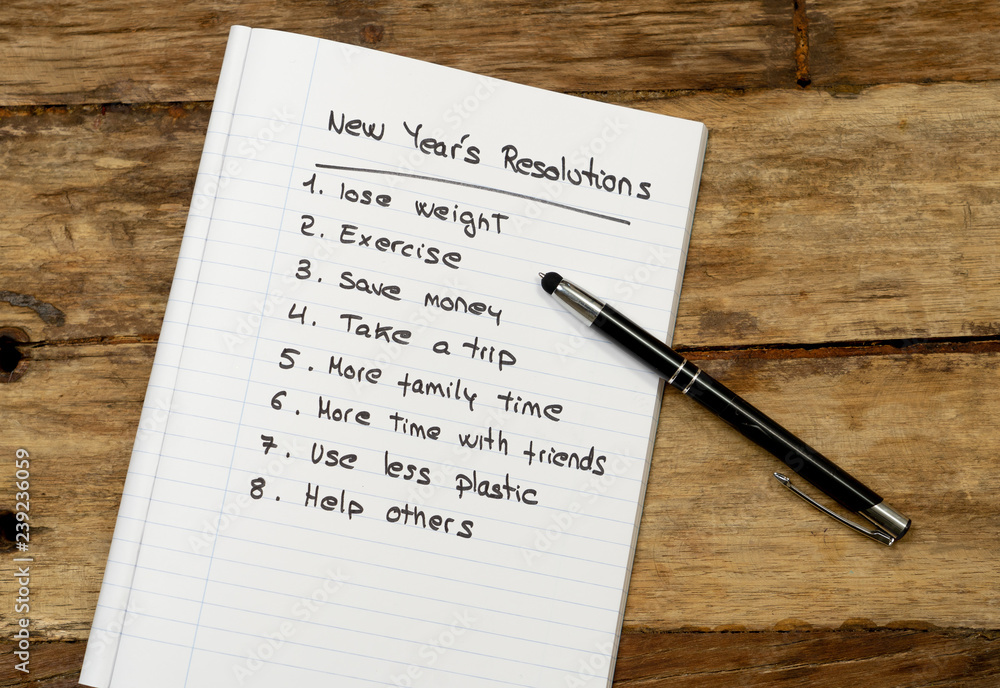 New Year's Resolutions
1. lose weight
2. Exercise
3. Save money
4. Take a trip
5. More family time
6. More time with friends
7. Use less plastic
8. Help others
Adobe Stock | #239236059